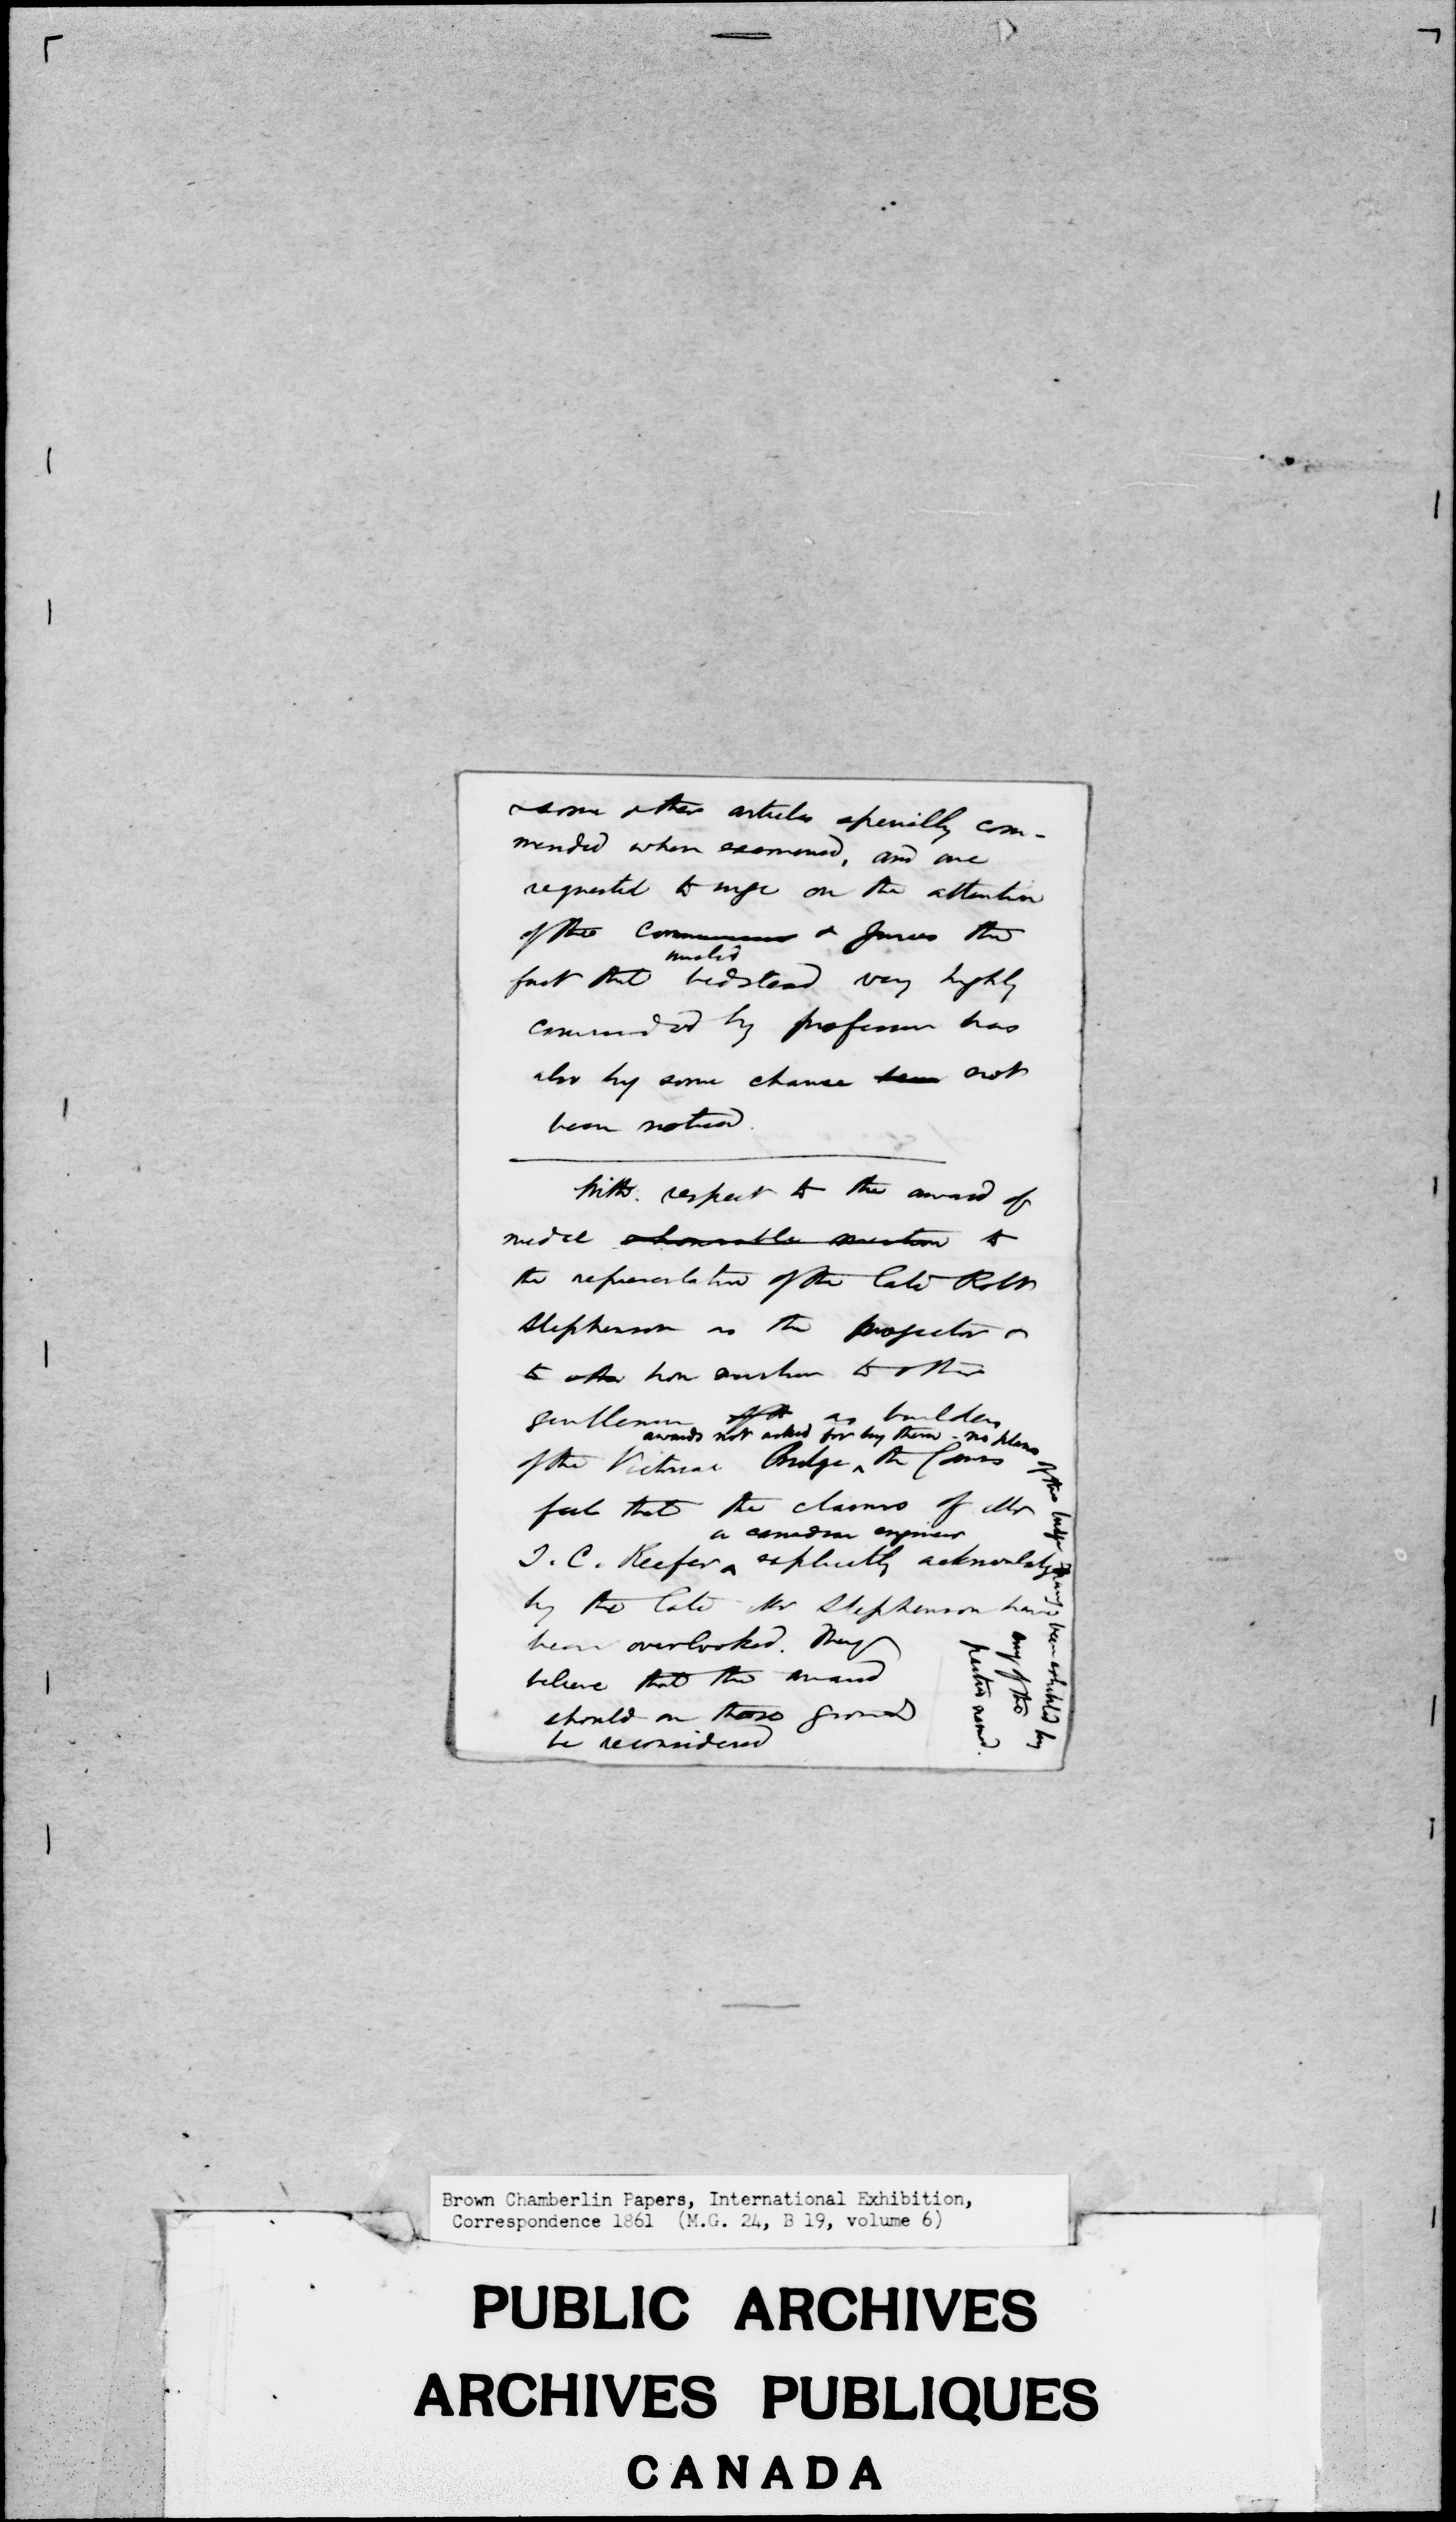 & some other articles specially com-
mended when examined, and are
requested to urge on the attention
of the Commissioners & Juries the
fact that invalid bedstead very highly
commended by professor has
also by some chance been not
been noticed.
With respect to the award of
medal & honorable mention to
the representative of the late Robt
Stephenson as the projector &
to other hon mention to other
gentlemen of the as builders
awards not asked for by them - no plans of this bridge having been exhibited by any of the parties named.
of the Victoria Bridge, the Comrs
feel that the claims of Mr
a canadian engineer
T. C. Keefer explicitly acknowledged
by the late Mr Stephenson have
been overlooked. They
believe that the award
should on these grounds
be reconsidered
Brown Chamberlin Papers, International Exhibition,
Correspondence 1861 (M.G. 24, B 19, volume 6)
PUBLIC ARCHIVES
ARCHIVES PUBLIQUES
CANADA